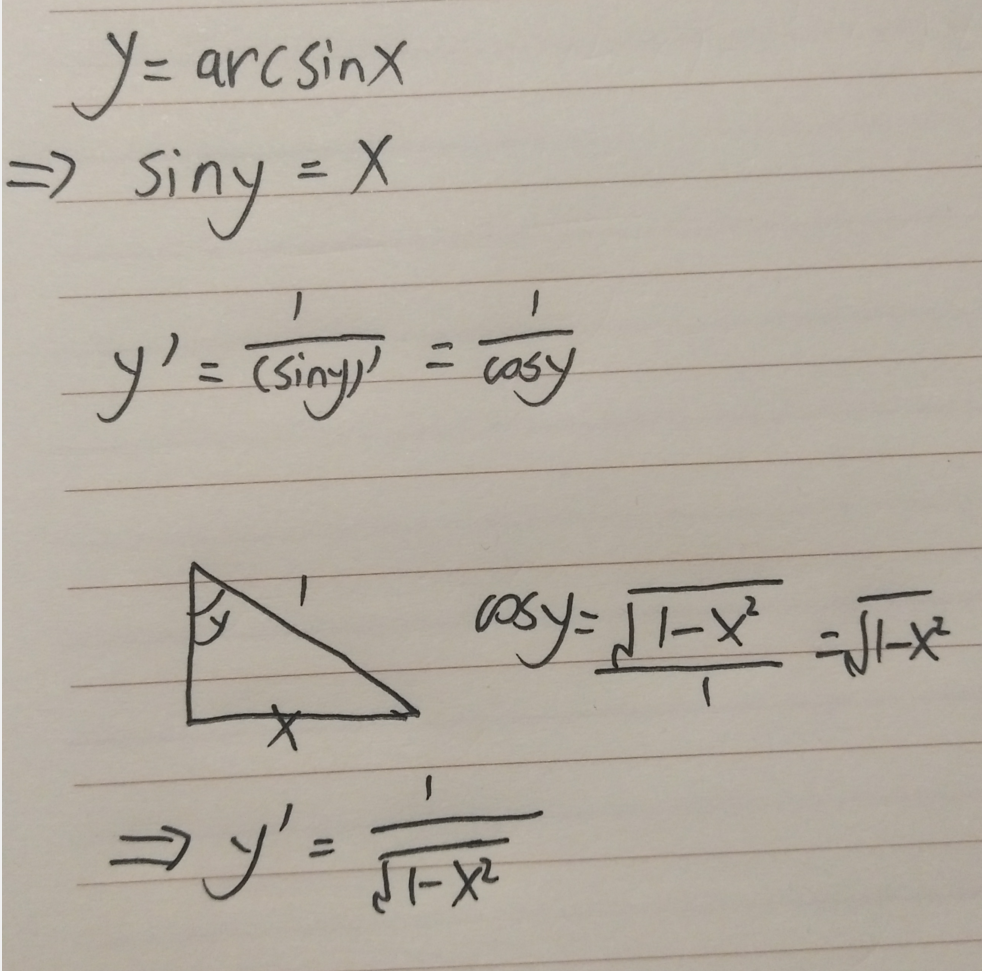 y = arcsinx
⇒ siny = x
y' = 1/(siny)' = 1/cosy
1
y
cosy = √(1-x²)/1 = √(1-x²)
x
⇒ y' = 1/√(1-x²)